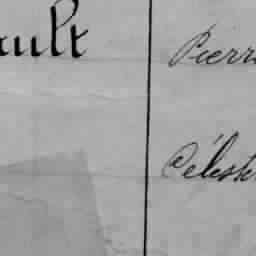 ault Pierre
Célest